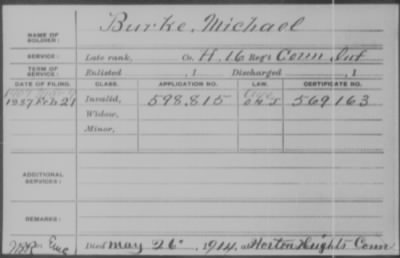 NAME OF SOLDIER: Burke, Michael
SERVICE: Late rank, Co. H, 16 Reg't Conn Inf
TERM OF SERVICE: Enlisted , 1 Discharged , 1
DATE OF FILING. CLASS. APPLICATION NO. LAW. CERTIFICATE NO.
1887 Feb 21 Invalid, 598,815 569163
Widow,
Minor,
ADDITIONAL SERVICES:
REMARKS:
Died May 26 1914, at Noroton Heights Conn